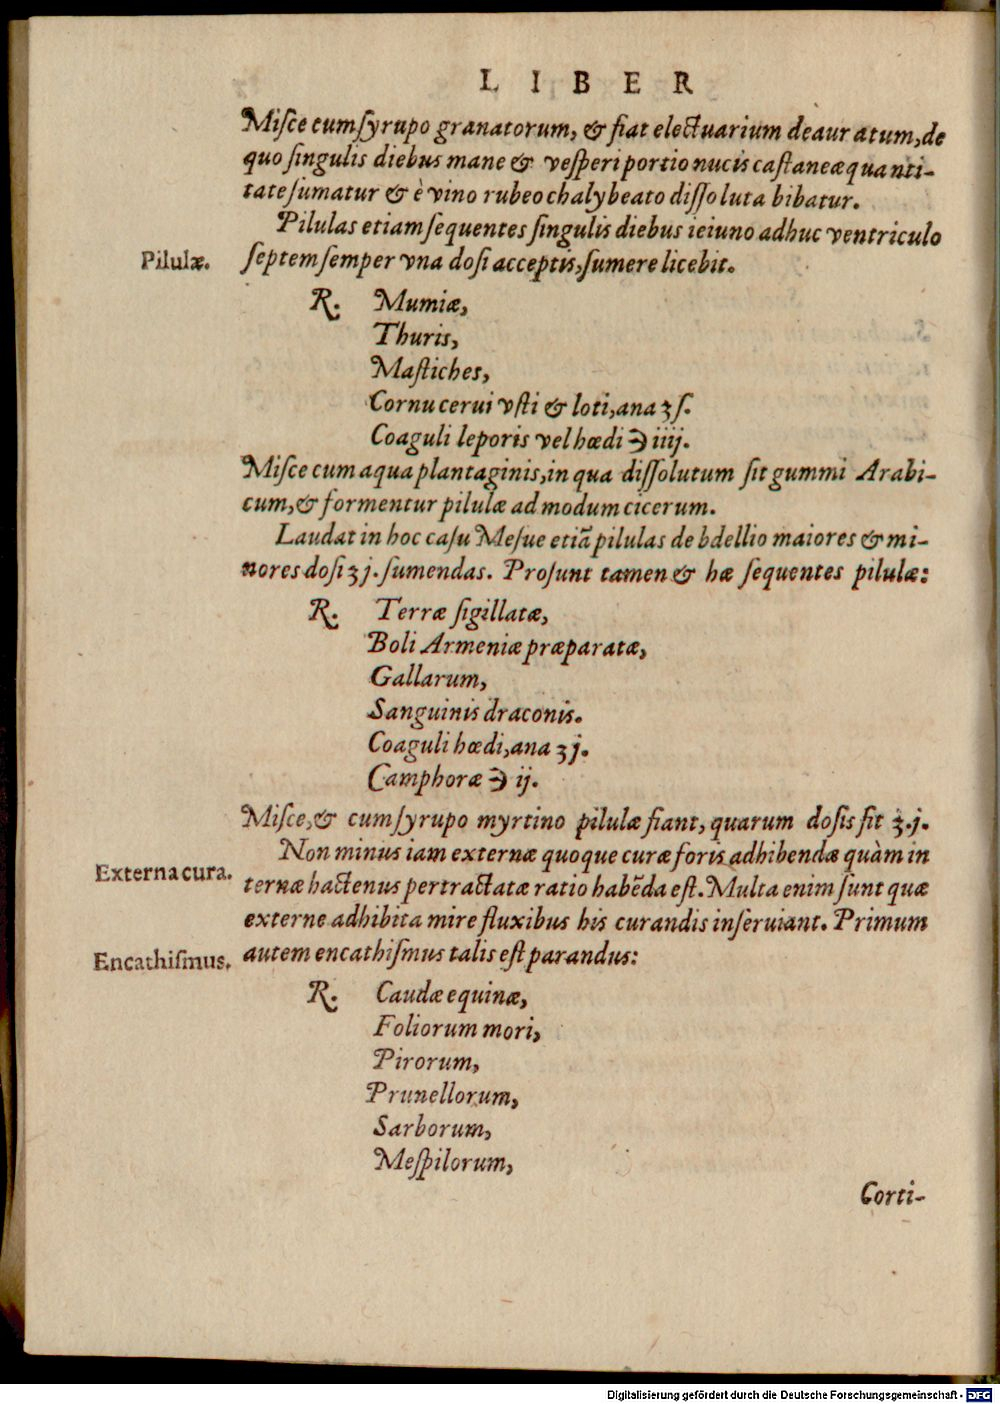 LIBER
Miſce cum ſyrupo granatorum, & fiat electuarium deauratum, de
quo ſingulis diebus mane & veſperi portio nucis caſtaneæ quanti-
tate ſumatur & è vino rubeo chalybeato diſſoluta bibatur.
Pilulas etiam ſequentes ſingulis diebus ieiuno adhuc ventriculo
Pilulæ. ſeptem ſemper vna doſi acceptis, ſumere licebit.
R. Mumiæ,
Thuris,
Maſtiches,
Cornu cerui vſti & loti, ana ʒ ſ.
Coaguli leporis vel hœdi ℈ iiij.
Miſce cum aqua plantaginis, in qua diſſolutum ſit gummi Arabi-
cum, & formentur pilulæ ad modum cicerum.
Laudat in hoc caſu Meſue etiā pilulas de bdellio maiores & mi-
nores doſi ʒ j. ſumendas. Proſunt tamen & hæ ſequentes pilulæ:
R. Terræ ſigillatæ,
Boli Armeniæ præparatæ,
Gallarum,
Sanguinis draconis.
Coaguli hœdi, ana ʒ j.
Camphoræ ℈ ij.
Miſce, & cum ſyrupo myrtino pilulæ fiant, quarum doſis ſit ʒ. j.
Non minus iam externæ quoque curæ foris adhibendæ quàm in
Externa cura. ternæ hactenus pertractatæ ratio habēda eſt. Multa enim ſunt quæ
externe adhibita mire fluxibus his curandis inſeruiant. Primum
Encathiſmus. autem encathiſmus talis eſt parandus:
R. Caudæ equinæ,
Foliorum mori,
Pirorum,
Prunellorum,
Sarborum,
Meſpilorum,
Corti-
Digitalisierung gefördert durch die Deutsche Forschungsgemeinschaft - DFG